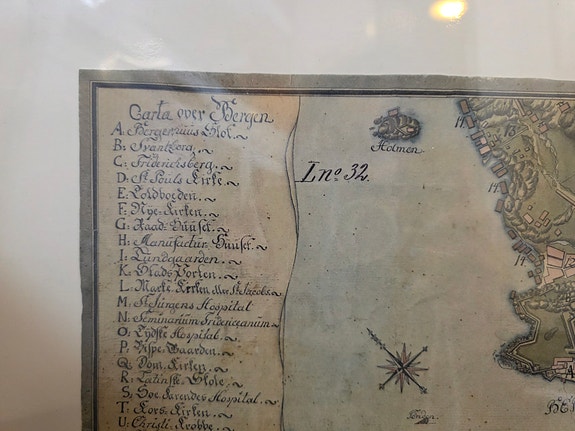 Carta over Bergen
A. Bergenhuus Slot.
B: Svantborg.
C: Fridericsberg.
D: St Pouls Kirke.
E: Toldboeden.
F: Nye-Kirken.
G: Raad-Huuset.
H: Manufactur Huuset.
I: Lundgaarden.
K: Stads Porten.
L: Marie Kirken eller St Jacobs.
M: St Jürgens Hospital
N: Seminarium Fridericianum
O: Tydske Hospital.
P: Bispe-Gaarden.
Q: Dom Kirken.
R: Latinske Skole.
S: Soe-Farendes Hospital.
T: Kors-Kirken.
U: Christi-Krybbe.
Holmen
L no. 32.
14.
13
14.
14
12
A